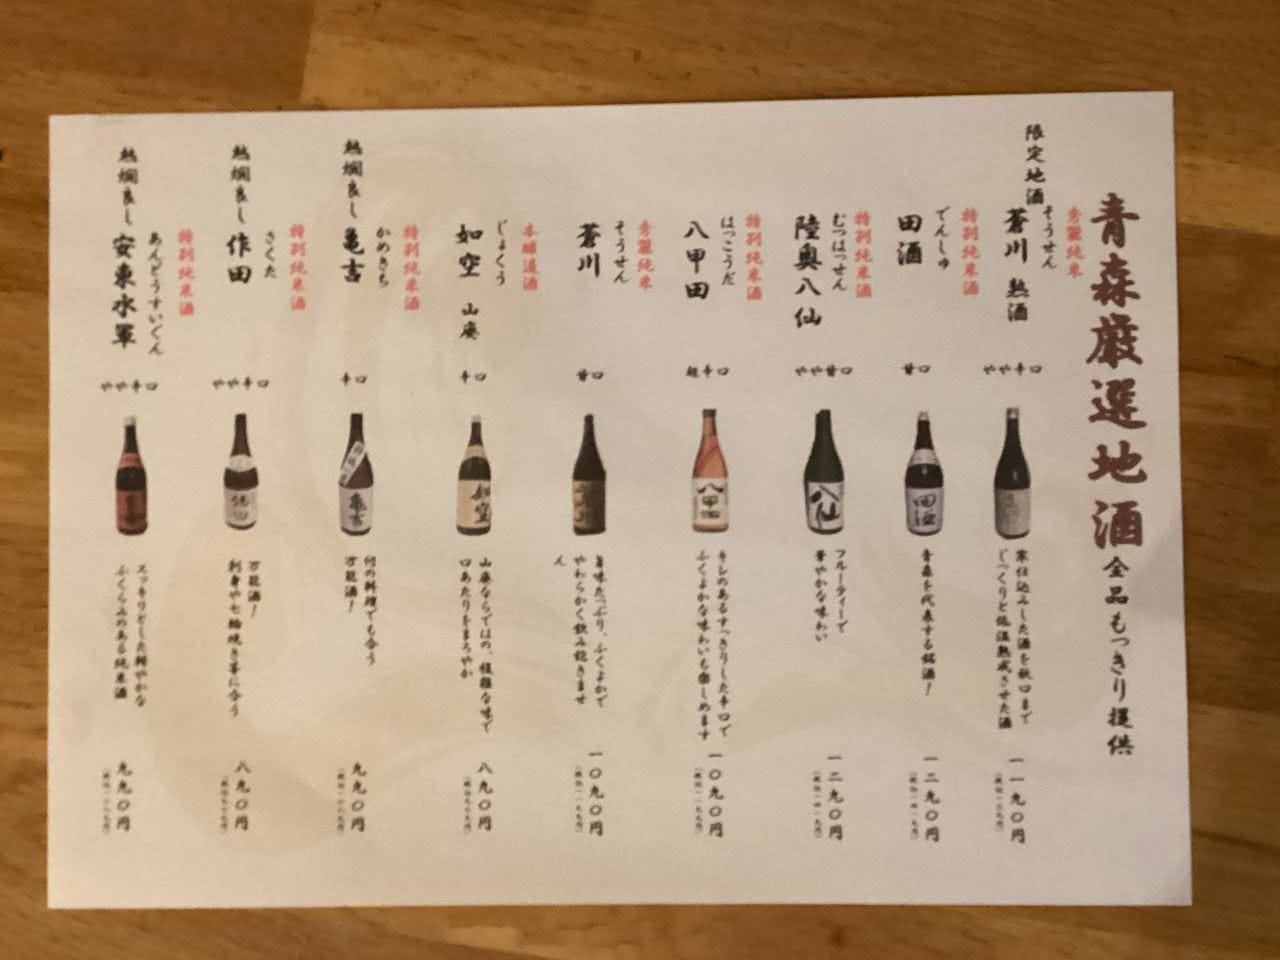 青森厳選地酒
全品もっきり提供
限定地酒
秀麗純米
そうせん
蒼川 熟酒
やや辛口
寒仕込みした酒を秋口まで
じっくりと低温熟成させた酒
一一九〇円
特別純米酒
でんしゅ
田酒
甘口
田酒
青森を代表する銘酒!
一二九〇円
特別純米酒
むつはっせん
陸奥八仙
やや甘口
八仙
フルーティーで
華やかな味わい
一二九〇円
特別純米酒
はっこうだ
八甲田
超辛口
八甲田
キレのあるすっきりした辛口で
ふくよかな味わいも楽しめます
一〇九〇円
秀麗純米
そうせん
蒼川
甘口
旨味たっぷり、ふくよかで
やわらかく飲み飽きませ
ん
一〇九〇円
本醸造酒
じょくう
如空 山廃
辛口
如空
山廃ならではの、複雑な味で
口あたりをまろやか
八九〇円
特別純米酒
かめきち
熱燗良し 亀吉
辛口
亀吉
何の料理でも合う
万能酒!
九九〇円
特別純米酒
さくた
熱燗良し 作田
やや辛口
作田
万能酒!
刺身や七輪焼き等に合う
八九〇円
特別純米酒
あんどうすいぐん
熱燗良し 安東水軍
やや辛口
スッキリとした軽やかな
ふくらみのある純米酒
九九〇円